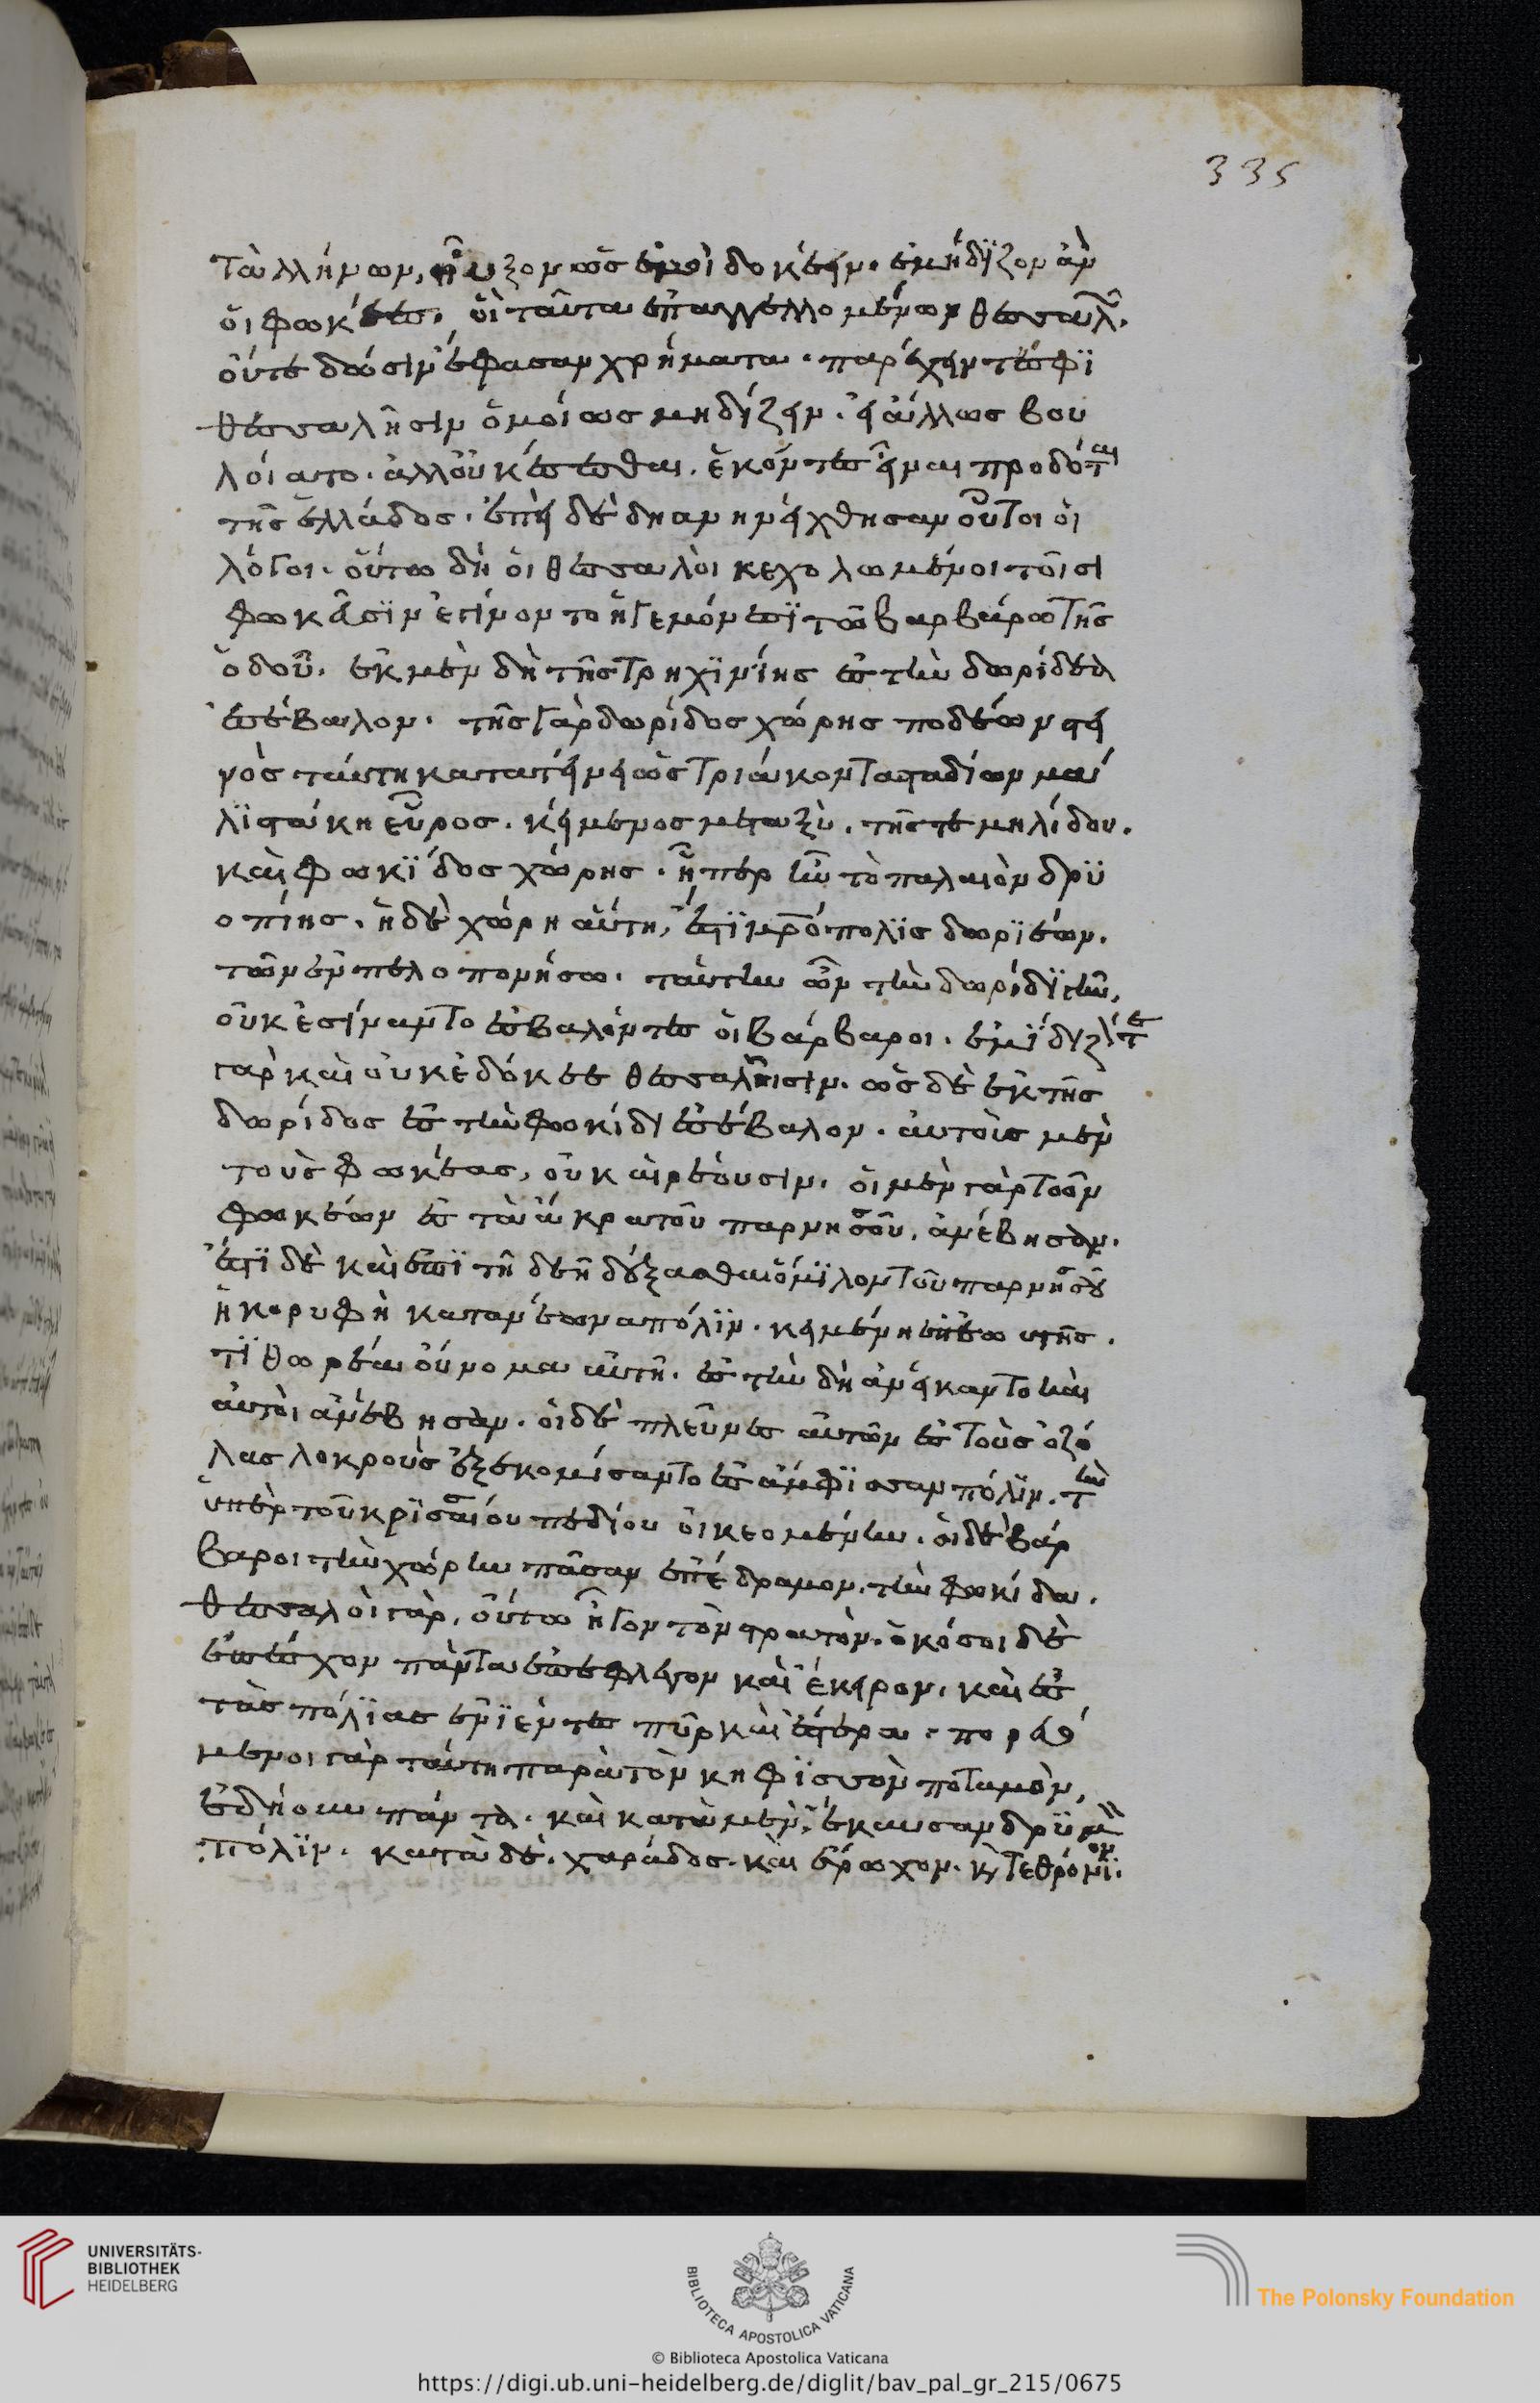 335
τὰ λλήνων, ηὖξον ὡς ἐμοὶ δοκέειν. ἐμήδϊζον ἂν
οἱ φωκέες. οἳ ταῦτα ἐπαγγελλομένων θεσσαλ.
οὔτε δώσϊν ἔφασαν χρήματα. παρέχειν τε σφϊ
θεσσαλῆσιν ὁμοίως μηδίζειν. εἰ ἄλλως βου
λοίατο. ἀλλ οὐκ ἔσεσθαι. ἑκόντες εἶναι προδόται
τῆς ἑλλάδος. ἐπεὶ δὲ δη ἀνηνείχθησαν οὗτοι οἱ
λόγοι. οὕτω δὴ οἱ θεσσαλοὶ κεχολωμένοι τοῖσι
φωκεῦσϊν ἐγίνοντο ἡγεμόνεσϊ τῶ βαρβάρω τῆς
ὁδοῦ. ἐκ μὲν δὴ τῆς τρηχϊνίης ἐς τὴν δωρίδα
ἐσέβαλον. τῆς γὰρ δωρίδος χώρης ποδεὼν στει
νὸς ταύτη κατατείνει ὡς τριάκοντα σταδίων μά
λϊστά κη εὖρος. κείμενος μεταξὺ. τῆς τε μηλίδος.
καὶ φωκΐδος χώρης. ἥπερ ἦν τὸ παλαιὸν δρϋ
οπίης. ἡ δὲ χώρη αὕτη, ἐστϊ μρόπολϊς δωρϊέων.
τῶν ἐν πελοπονήσω. ταύτην ὦν τὴν δωρίδϊ γῆν,
οὐκ ἐσίναντο ἐσβαλόντες οἱ βάρβαροι. ἐμΐδιζόν τε
γὰρ καὶ οὐκ ἐδόκεε θεσσαλῆισιν. ὡς δὲ ἐκ τῆς
δωρίδος ἐς τὴν φωκίδα ἐσέβαλον. αὐτοὺς μὲν
τοὺς φωκέας, οὐκ αἱρέουσιν. οἱ μὲν γὰρ τῶν
φωκέων ἐς τὰ ἄκρα τοῦ παρνησοῦ. ἀνέβησαν.
ἔστϊ δὲ καὶ ἐπϊτηδεὴ δέξασθαι ὅμϊλον τοῦ παρνησοῦ
ἡ κορυφὴ κατὰ νέωνα πόλϊν. κειμένη ἐπ ἑωυτῆς.
τϊθορέα οὔνομα αὐτῆ. ἐς τὴν δὴ ἀνείκαντο καὶ
αὐτοὶ ἀνέβησαν. οἱ δὲ πλεῦνες αὐτῶν ἐς τοὺς ὀζό
λας λοκροὺς ἐξεκομίσαντο ἐς ἄμφϊσσαν πόλϊν. τὴν
ὑπὲρ τοῦ κρϊσσαίου πεδίου οἰκεομένην. οἱ δὲ βάρ
βαροι τὴν χώρην πᾶσαν ἐπέδραμον. τὴν φωκίδα.
θεσσαλοὶ γὰρ. οὕτω ἦγον τὸν στρατόν. ὁκόσοι δὲ
ἐπέσχον πάντα ἐπέφλεγον καὶ ἔκειρον. καὶ ἐς
τὰς πόλϊας ἐνϊέντες πῦρ καὶ ἐς τὰ ἱρά. πορευό
μενοι γὰρ ταύτη παρὰ τὸν κηφϊσσὸν ποταμὸν,
ἐδηίουν πάντα. καὶ κατὰ μὲν ἔκαυσαν δρϋμὸν
πόλϊν. κατὰ δὲ. χαράδος. καὶ ἔρωχον. κὴ τεθρόνϊον.
UNIVERSITÄTS-
BIBLIOTHEK
HEIDELBERG
BIBLIOTECA APOSTOLICA VATICANA
The Polonsky Foundation
© Biblioteca Apostolica Vaticana
https://digi.ub.uni-heidelberg.de/diglit/bav_pal_gr_215/0675